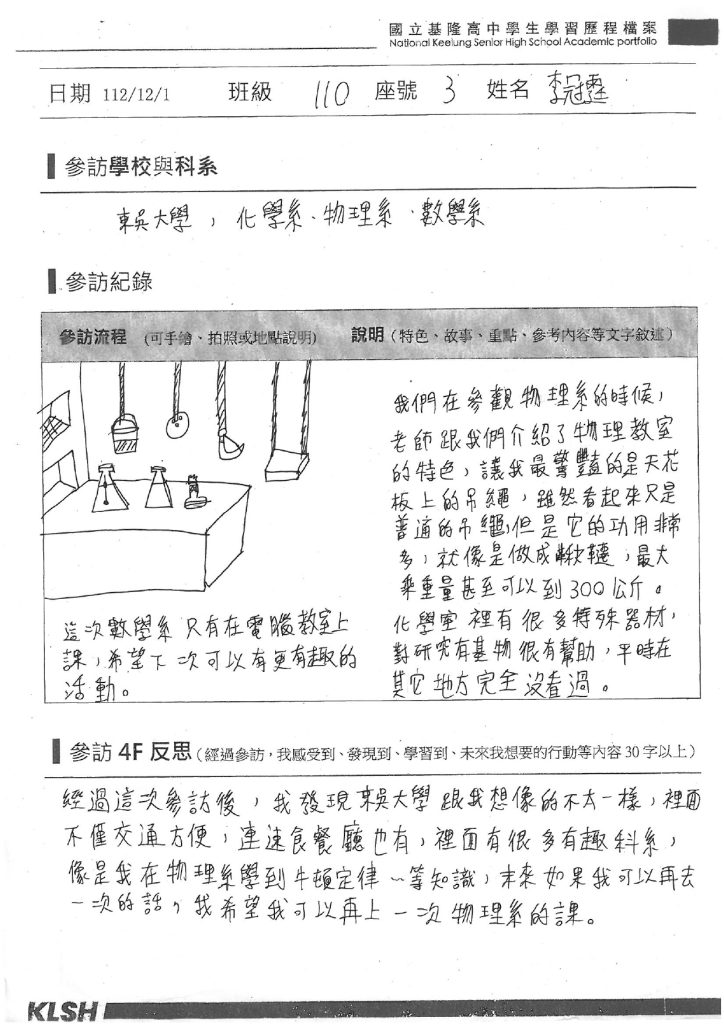 國立基隆高中學生學習歷程檔案
National Keelung Senior High School Academic portfolio
日期 112/12/1 班級 110 座號 3 姓名 李冠霆
參訪學校與科系
東吳大學，化學系、物理系、數學系
參訪紀錄
參訪流程 (可手繪、拍照或地點說明) 說明（特色、故事、重點、參考內容等文字敘述）
我們在參觀物理系的時候，
老師跟我們介紹了物理教室
的特色，讓我最驚豔的是天花
板上的吊繩，雖然看起來只是
普通的吊繩，但是它的功用非常
多，就像是做成鞦韆，最大
乘重量甚至可以到300公斤。
化學室裡有很多特殊器材，
對研究有基物很有幫助，平時在
其它地方完全沒看過。
這次數學系只有在電腦教室上
課，希望下次可以有更有趣的
活動。
參訪 4F 反思（經過參訪，我感受到、發現到、學習到、未來我想要的行動等內容 30 字以上）
經過這次參訪後，我發現東吳大學跟我想像的不太一樣，裡面
不僅交通方便，連速食餐廳也有，裡面有很多有趣科系，
像是我在物理系學到牛頓定律…等知識，未來如果我可以再去
一次的話，我希望我可以再上一次物理系的課。
KLSH